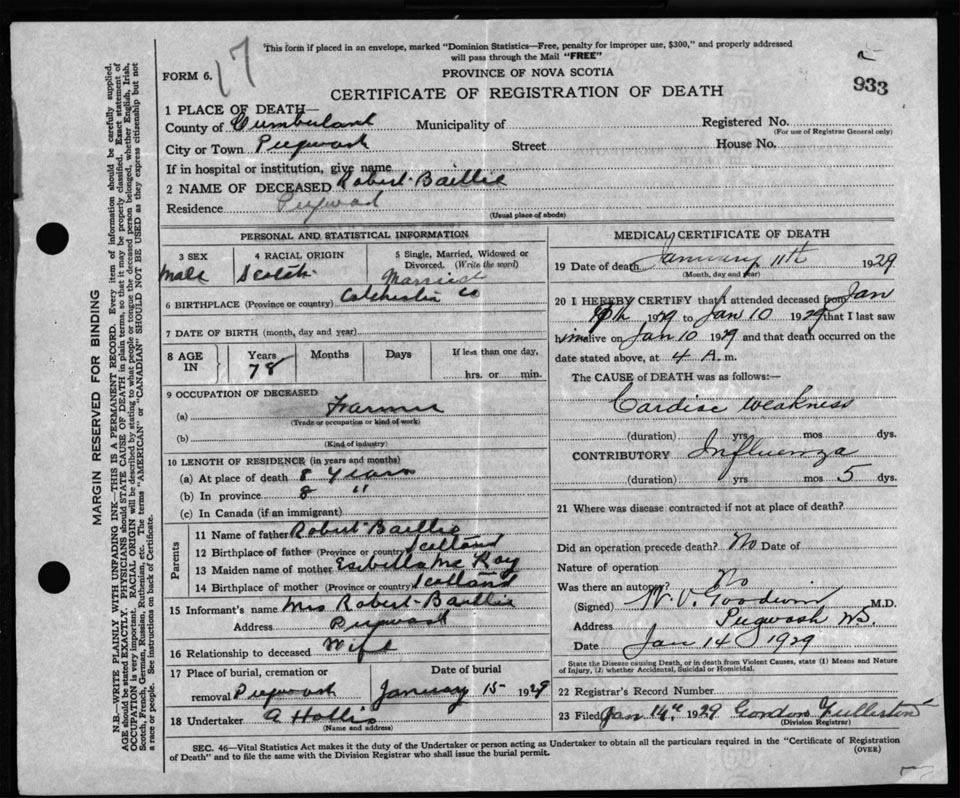 This form if placed in an envelope, marked "Dominion Statistics—Free, penalty for improper use, $300," and properly addressed
will pass through the Mail "FREE"
FORM 6. 17
PROVINCE OF NOVA SCOTIA
CERTIFICATE OF REGISTRATION OF DEATH
933
1 PLACE OF DEATH—
County of Cumberland Municipality of Registered No.
(For use of Registrar General only)
City or Town Pugwash Street House No.
If in hospital or institution, give name
2 NAME OF DECEASED Robert Baillie
Residence Pugwash
(Usual place of abode)
PERSONAL AND STATISTICAL INFORMATION
3 SEX 4 RACIAL ORIGIN 5 Single, Married, Widowed or
Divorced. (Write the word)
Male Scotch Married
6 BIRTHPLACE (Province or country) Colchester Co
7 DATE OF BIRTH (month, day and year)
8 AGE IN Years Months Days If less than one day,
78 hrs. or min.
9 OCCUPATION OF DECEASED
(a) Farmer
(Trade or occupation or kind of work)
(b)
(Kind of industry)
10 LENGTH OF RESIDENCE (in years and months)
(a) At place of death 8 years
(b) In province 8 "
(c) In Canada (if an immigrant)
Parents
11 Name of father Robert Baillie
12 Birthplace of father (Province or country) Scotland
13 Maiden name of mother Esibella Mc Kay
14 Birthplace of mother (Province or country) Scotland
15 Informant's name Mrs Robert Baillie
Address Pugwash
16 Relationship to deceased Wife
17 Place of burial, cremation or Date of burial
removal Pugwash January 15 1929
18 Undertaker A Hollis
(Name and address)
MEDICAL CERTIFICATE OF DEATH
19 Date of death January 11th 1929
(Month, day and year)
20 I HEREBY CERTIFY that I attended deceased from Jan
1929 to Jan 10 1929 that I last saw
him alive on Jan 10 1929 and that death occurred on the
date stated above, at 4 A. m.
The CAUSE of DEATH was as follows:—
Cardiac weakness
(duration) yrs. mos dys.
CONTRIBUTORY Influenza
(duration) yrs mos 5 dys.
21 Where was disease contracted if not at place of death?
Did an operation precede death? No Date of
Nature of operation
Was there an autopsy? No
(Signed) W. V. Goodwin M.D.
Address Pugwash N.S.
Date Jan 14 1929
State the Disease causing Death, or in death from Violent Causes, state (1) Means and Nature
of Injury, (2) whether Accidental, Suicidal or Homicidal.
22 Registrar's Record Number
23 Filed Jan 14th 1929 Gordon Fullerton
(Division Registrar)
SEC. 46—Vital Statistics Act makes it the duty of the Undertaker or person acting as Undertaker to obtain all the particulars required in the "Certificate of Registration
of Death" and to file the same with the Division Registrar who shall issue the burial permit. (OVER)
MARGIN RESERVED FOR BINDING
N.B.—WRITE PLAINLY WITH UNFADING INK—THIS IS A PERMANENT RECORD. Every item of information should be carefully supplied.
AGE should be stated EXACTLY. PHYSICIANS should STATE CAUSE OF DEATH in plain terms, so that it may be properly classified. Exact statement of
OCCUPATION is very important. RACIAL ORIGIN will be described by stating to what people or tongue the deceased person belonged, whether English, Irish,
Scotch, French, German, Russian, Ruthenian, etc. The terms "AMERICAN" or "CANADIAN" SHOULD NOT BE USED as they express citizenship but not
a race or people. See instructions on back of Certificate.